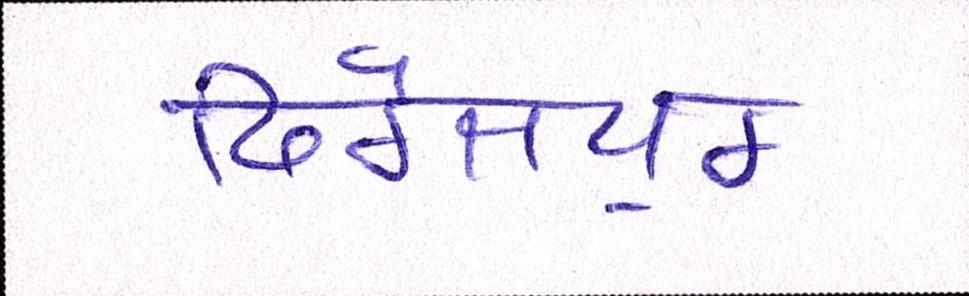 ਫਿਰੋਜਪੁਰ